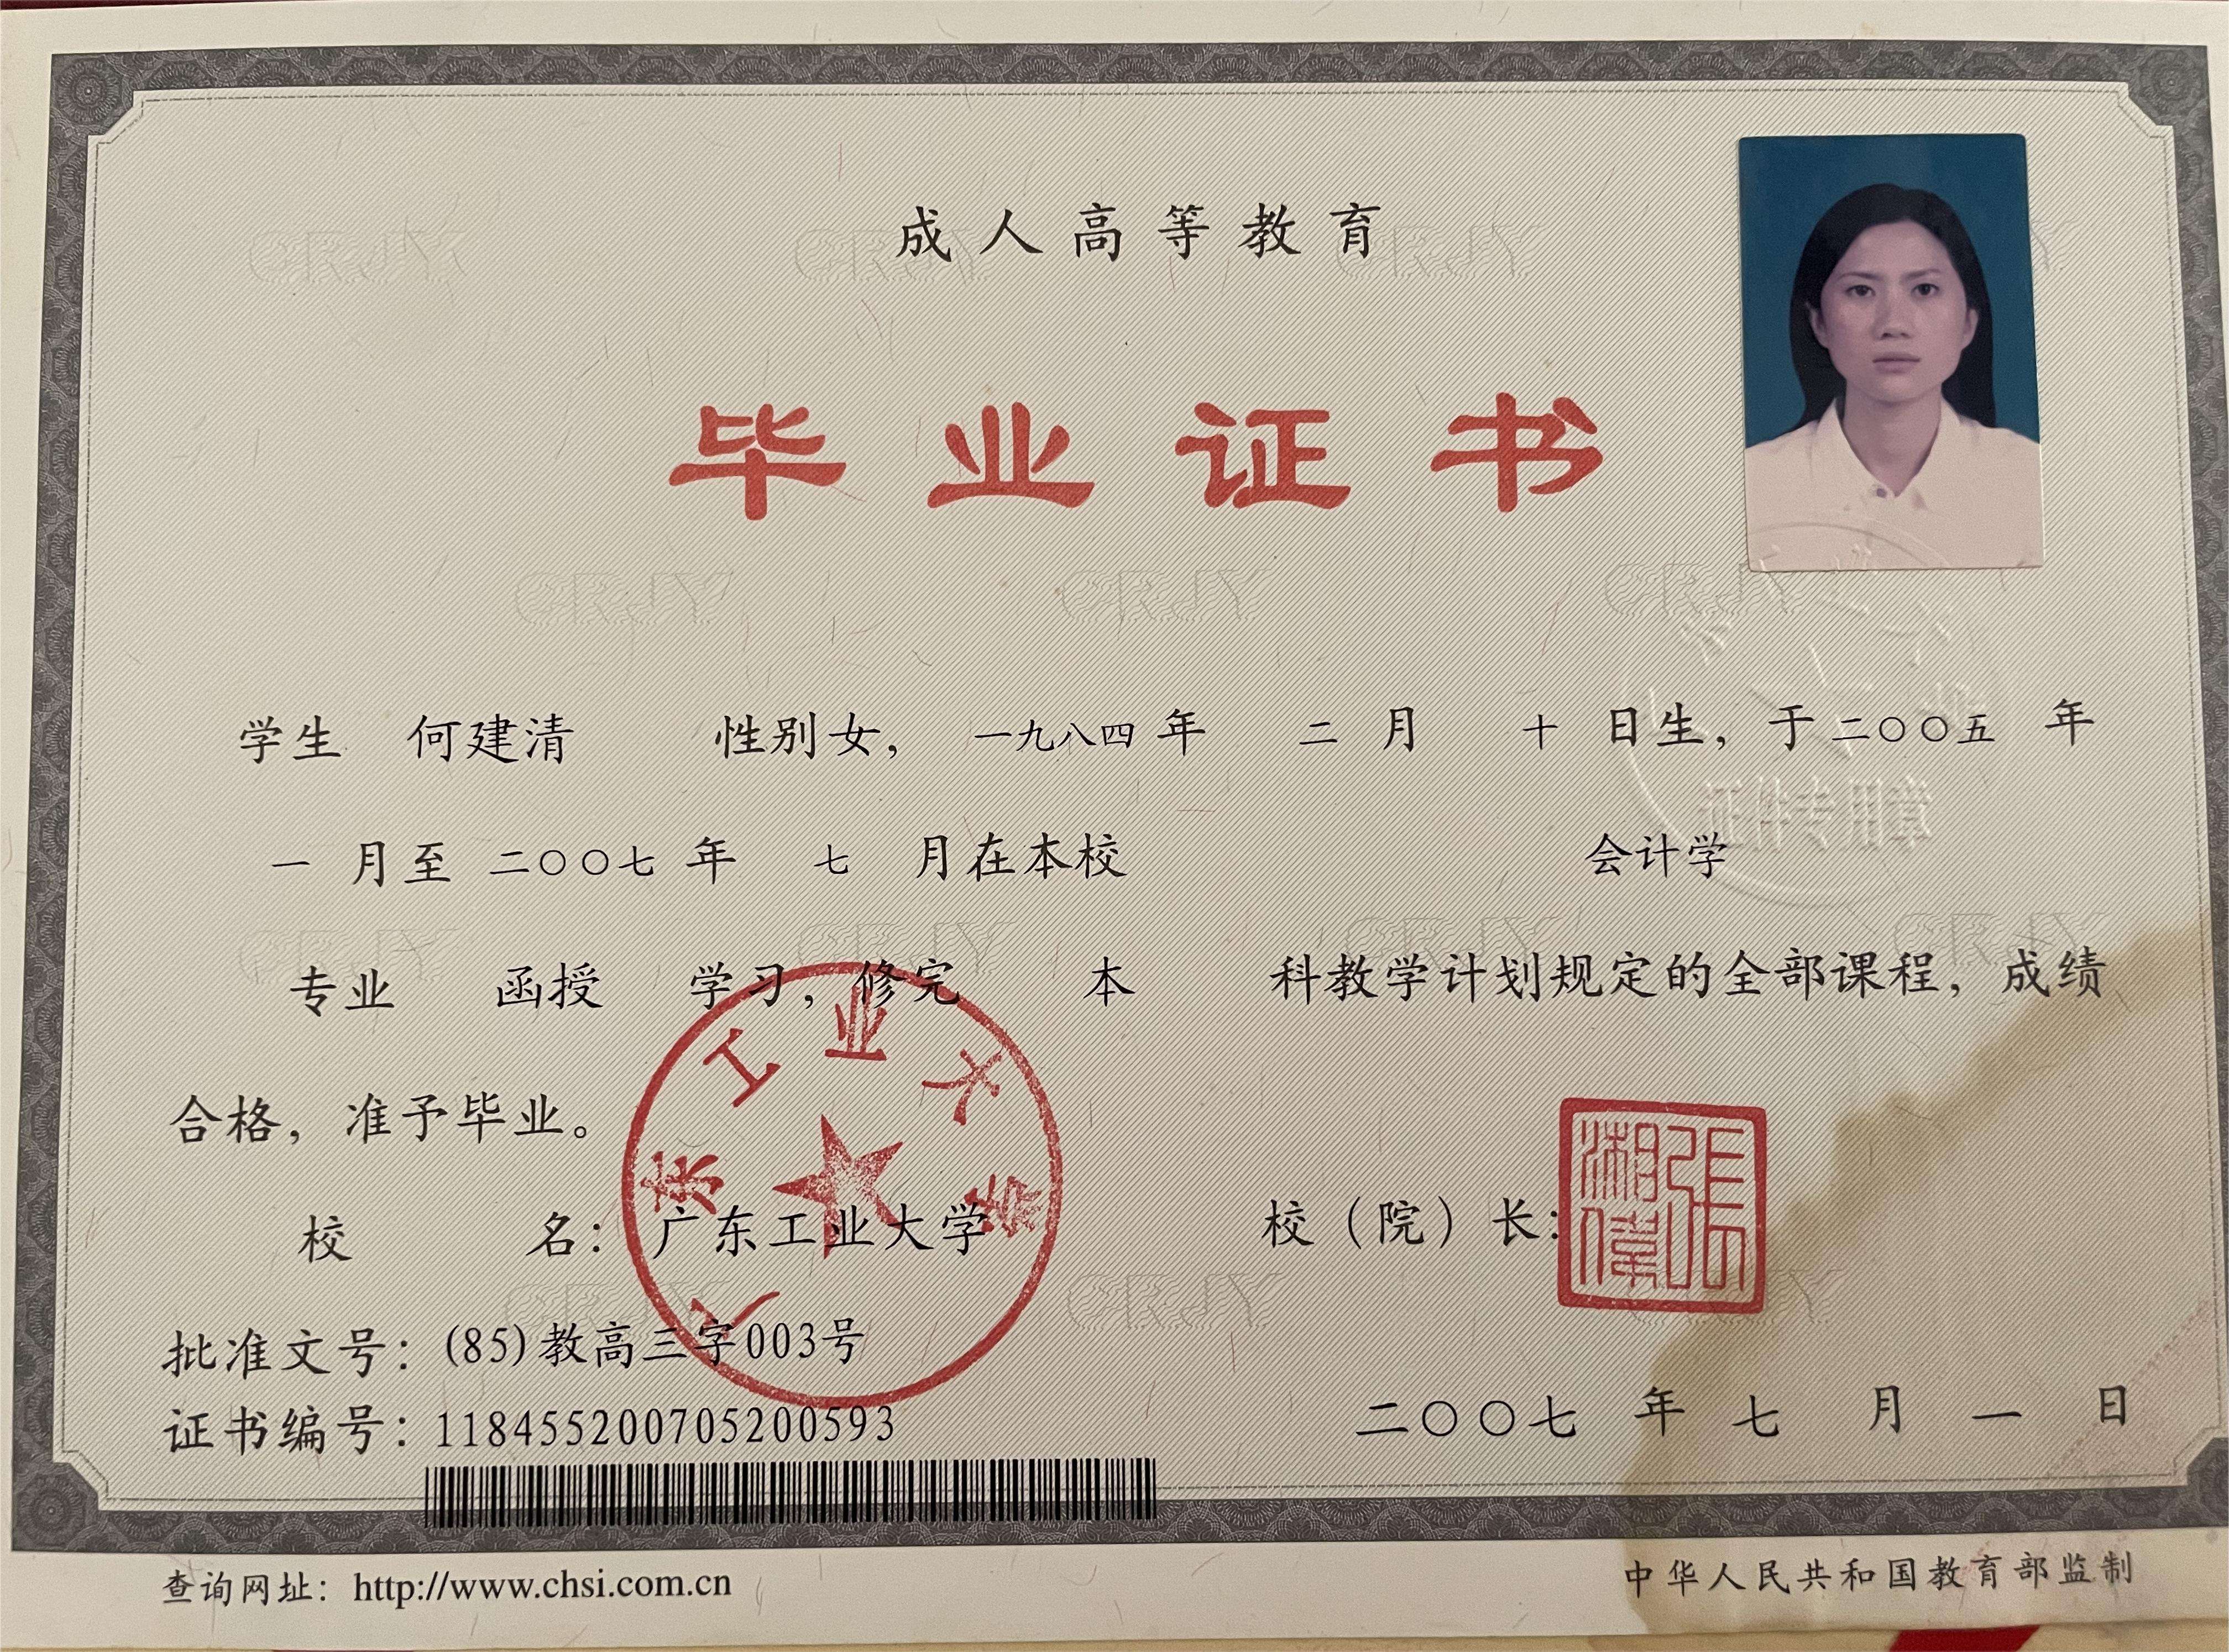 成人高等教育
毕业证书
学生 何建清 性别女， 一九八四 年 二 月 十 日生，于二〇〇五 年
一 月至 二〇〇七 年 七 月在本校 会计学
专业 函授 学习，修完 本 科教学计划规定的全部课程，成绩
合格，准予毕业。
校 名：广东工业大学 校（院）长：
張湘偉
广东工业大学
证件专用章
批准文号：(85)教高三字003号
证书编号：118455200705200593
二〇〇七 年 七 月 一 日
查询网址：http://www.chsi.com.cn
中华人民共和国教育部监制
CRJY
CRJY
CRJY
CRJY
CRJY
CRJY
CRJY
CRJY
CRJY
CRJY
CRJY
CRJY